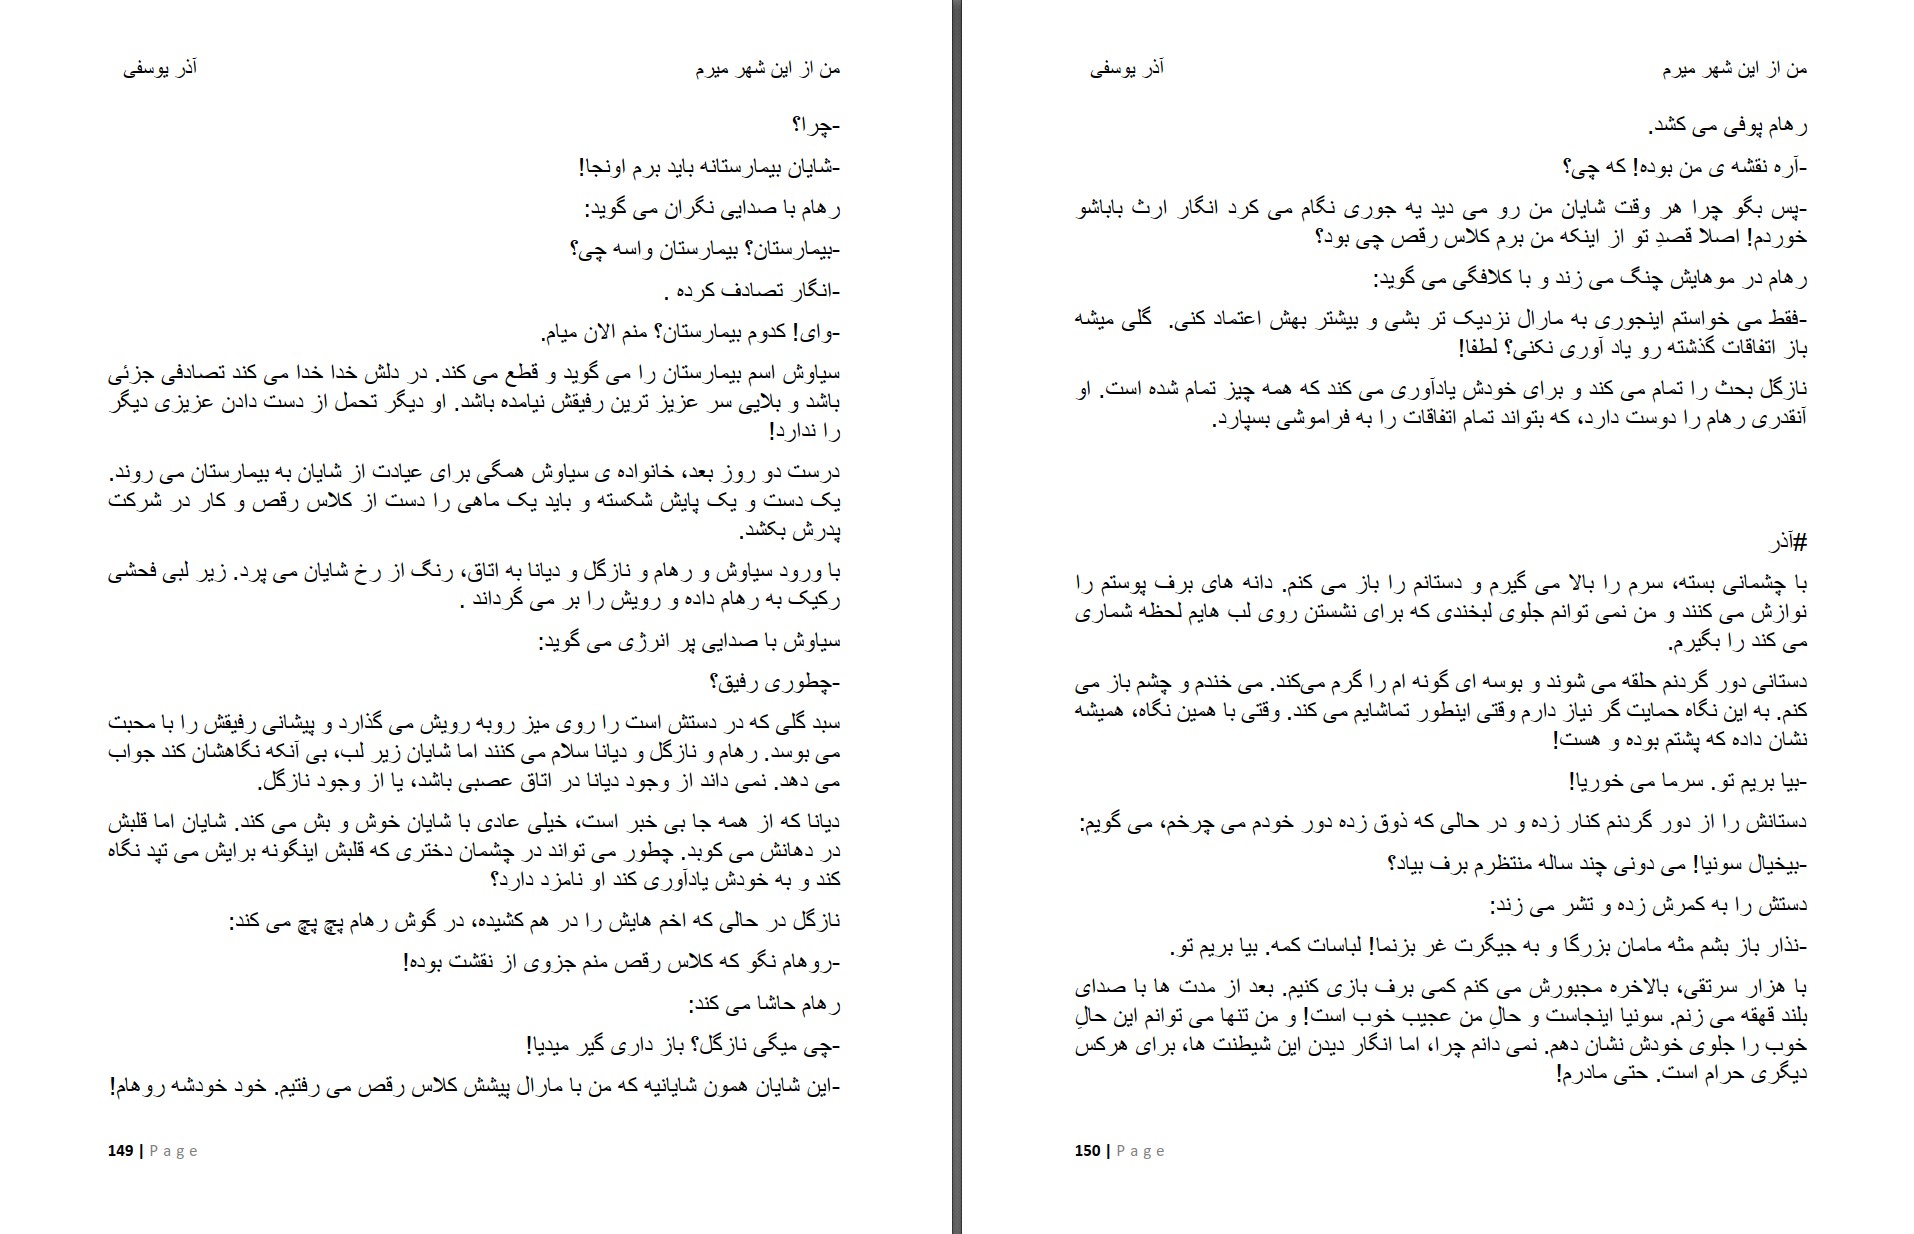 من از این شهر میرم
آذر یوسفی
-چرا؟
-شایان بیمارستانه باید برم اونجا!
رهام با صدایی نگران می گوید:
-بیمارستان؟ بیمارستان واسه چی؟
-انگار تصادف کرده .
-وای! کدوم بیمارستان؟ منم الان میام.
سیاوش اسم بیمارستان را می گوید و قطع می کند. در دلش خدا خدا می کند تصادفی جزئی
باشد و بلایی سر عزیز ترین رفیقش نیامده باشد. او دیگر تحمل از دست دادن عزیزی دیگر
را ندارد!
درست دو روز بعد، خانواده ی سیاوش همگی برای عیادت از شایان به بیمارستان می روند.
یک دست و یک پایش شکسته و باید یک ماهی را دست از کلاس رقص و کار در شرکت
پدرش بکشد.
با ورود سیاوش و رهام و نازگل و دیانا به اتاق، رنگ از رخ شایان می پرد. زیر لبی فحشی
رکیک به رهام داده و رویش را بر می گرداند .
سیاوش با صدایی پر انرژی می گوید:
-چطوری رفیق؟
سبد گلی که در دستش است را روی میز روبه رویش می گذارد و پیشانی رفیقش را با محبت
می بوسد. رهام و نازگل و دیانا سلام می کنند اما شایان زیر لب، بی آنکه نگاهشان کند جواب
می دهد. نمی داند از وجود دیانا در اتاق عصبی باشد، یا از وجود نازگل.
دیانا که از همه جا بی خبر است، خیلی عادی با شایان خوش و بش می کند. شایان اما قلبش
در دهانش می کوبد. چطور می تواند در چشمان دختری که قلبش اینگونه برایش می تپد نگاه
کند و به خودش یادآوری کند او نامزد دارد؟
نازگل در حالی که اخم هایش را در هم کشیده، در گوش رهام پچ پچ می کند:
-روهام نگو که کلاس رقص منم جزوی از نقشت بوده!
رهام حاشا می کند:
-چی میگی نازگل؟ باز داری گیر میدیا!
-این شایان همون شایانیه که من با مارال پیشش کلاس رقص می رفتیم. خود خودشه روهام!
149 | Page
من از این شهر میرم
آذر یوسفی
رهام پوفی می کشد.
-آره نقشه ی من بوده! که چی؟
-پس بگو چرا هر وقت شایان من رو می دید یه جوری نگام می کرد انگار ارث باباشو
خوردم! اصلا قصدِ تو از اینکه من برم کلاس رقص چی بود؟
رهام در موهایش چنگ می زند و با کلافگی می گوید:
-فقط می خواستم اینجوری به مارال نزدیک تر بشی و بیشتر بهش اعتماد کنی. گلی میشه
باز اتفاقات گذشته رو یاد آوری نکنی؟ لطفا!
نازگل بحث را تمام می کند و برای خودش یادآوری می کند که همه چیز تمام شده است. او
آنقدری رهام را دوست دارد، که بتواند تمام اتفاقات را به فراموشی بسپارد.
#آذر
با چشمانی بسته، سرم را بالا می گیرم و دستانم را باز می کنم. دانه های برف پوستم را
نوازش می کنند و من نمی توانم جلوی لبخندی که برای نشستن روی لب هایم لحظه شماری
می کند را بگیرم.
دستانی دور گردنم حلقه می شوند و بوسه ای گونه ام را گرم می‌کند. می خندم و چشم باز می
کنم. به این نگاه حمایت گر نیاز دارم وقتی اینطور تماشایم می کند. وقتی با همین نگاه، همیشه
نشان داده که پشتم بوده و هست!
-بیا بریم تو. سرما می خوریا!
دستانش را از دور گردنم کنار زده و در حالی که ذوق زده دور خودم می چرخم، می گویم:
-بیخیال سونیا! می دونی چند ساله منتظرم برف بیاد؟
دستش را به کمرش زده و تشر می زند:
-نذار باز بشم مثه مامان بزرگا و به جیگرت غر بزنما! لباسات کمه. بیا بریم تو.
با هزار سرتقی، بالاخره مجبورش می کنم کمی برف بازی کنیم. بعد از مدت ها با صدای
بلند قهقه می زنم. سونیا اینجاست و حالِ من عجیب خوب است! و من تنها می توانم این حالِ
خوب را جلوی خودش نشان دهم. نمی دانم چرا، اما انگار دیدن این شیطنت ها، برای هرکس
دیگری حرام است. حتی مادرم!
150 | Page